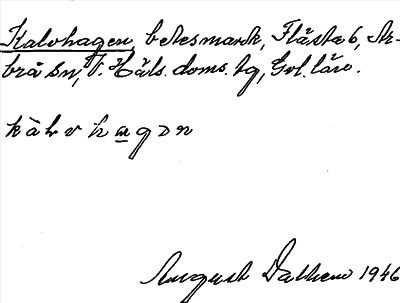 Kalvhagen, betesmark, Flästa 6, Ar-
brå sn, V. Häls. doms. tg, Gvl. län.
k à l v h a g ɔ n
August Dalhem 1946